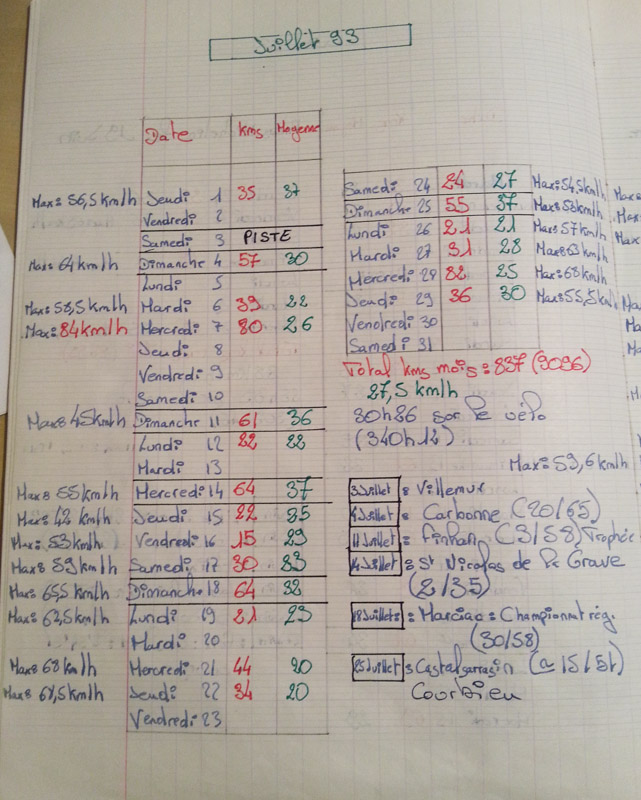 Juillet 93
Date kms Moyenne
Max: 56,5 km/h Jeudi 1 35 37
Vendredi 2
Samedi 3 PISTE
Max: 64 km/h Dimanche 4 57 30
Lundi 5
Max: 58,5 km/h Mardi 6 39 22
Max: 84 km/h Mercredi 7 80 26
Jeudi 8
Vendredi 9
Samedi 10
Max: 45 km/h Dimanche 11 61 36
Lundi 12 22 22
Mardi 13
Max: 55 km/h Mercredi 14 64 37
Max: 42 km/h Jeudi 15 22 35
Max: 53 km/h Vendredi 16 15 29
Max: 59 km/h Samedi 17 30 33
Max: 65,5 km/h Dimanche 18 64 32
Max: 63,5 km/h Lundi 19 21 23
Mardi 20
Max: 68 km/h Mercredi 21 44 20
Max: 67,5 km/h Jeudi 22 34 20
Vendredi 23
Samedi 24 24 27 Max: 54,5 km/h
Dimanche 25 55 37 Max: 53 km/h
Lundi 26 21 21 Max: 57 km/h
Mardi 27 31 28 Max: 63 km/h
Mercredi 28 82 25 Max: 68 km/h
Jeudi 29 36 30 Max: 55,5 km/h
Vendredi 30
Samedi 31
Total kms mois : 837 (9096)
27,5 km/h
30h26 sur le vélo
(340h12)
Max: 59,6 km/h
3 Juillet : Villemur
4 Juillet : Carbonne (20/65)
11 Juillet : Finhan (3/58) Trophée
14 Juillet : St Nicolas de la Grave
(2/35)
18 Juillet : Marciac : Championnat rég.
(30/58)
25 Juillet : Castelsarrasin (a 15/51)
Courbieu